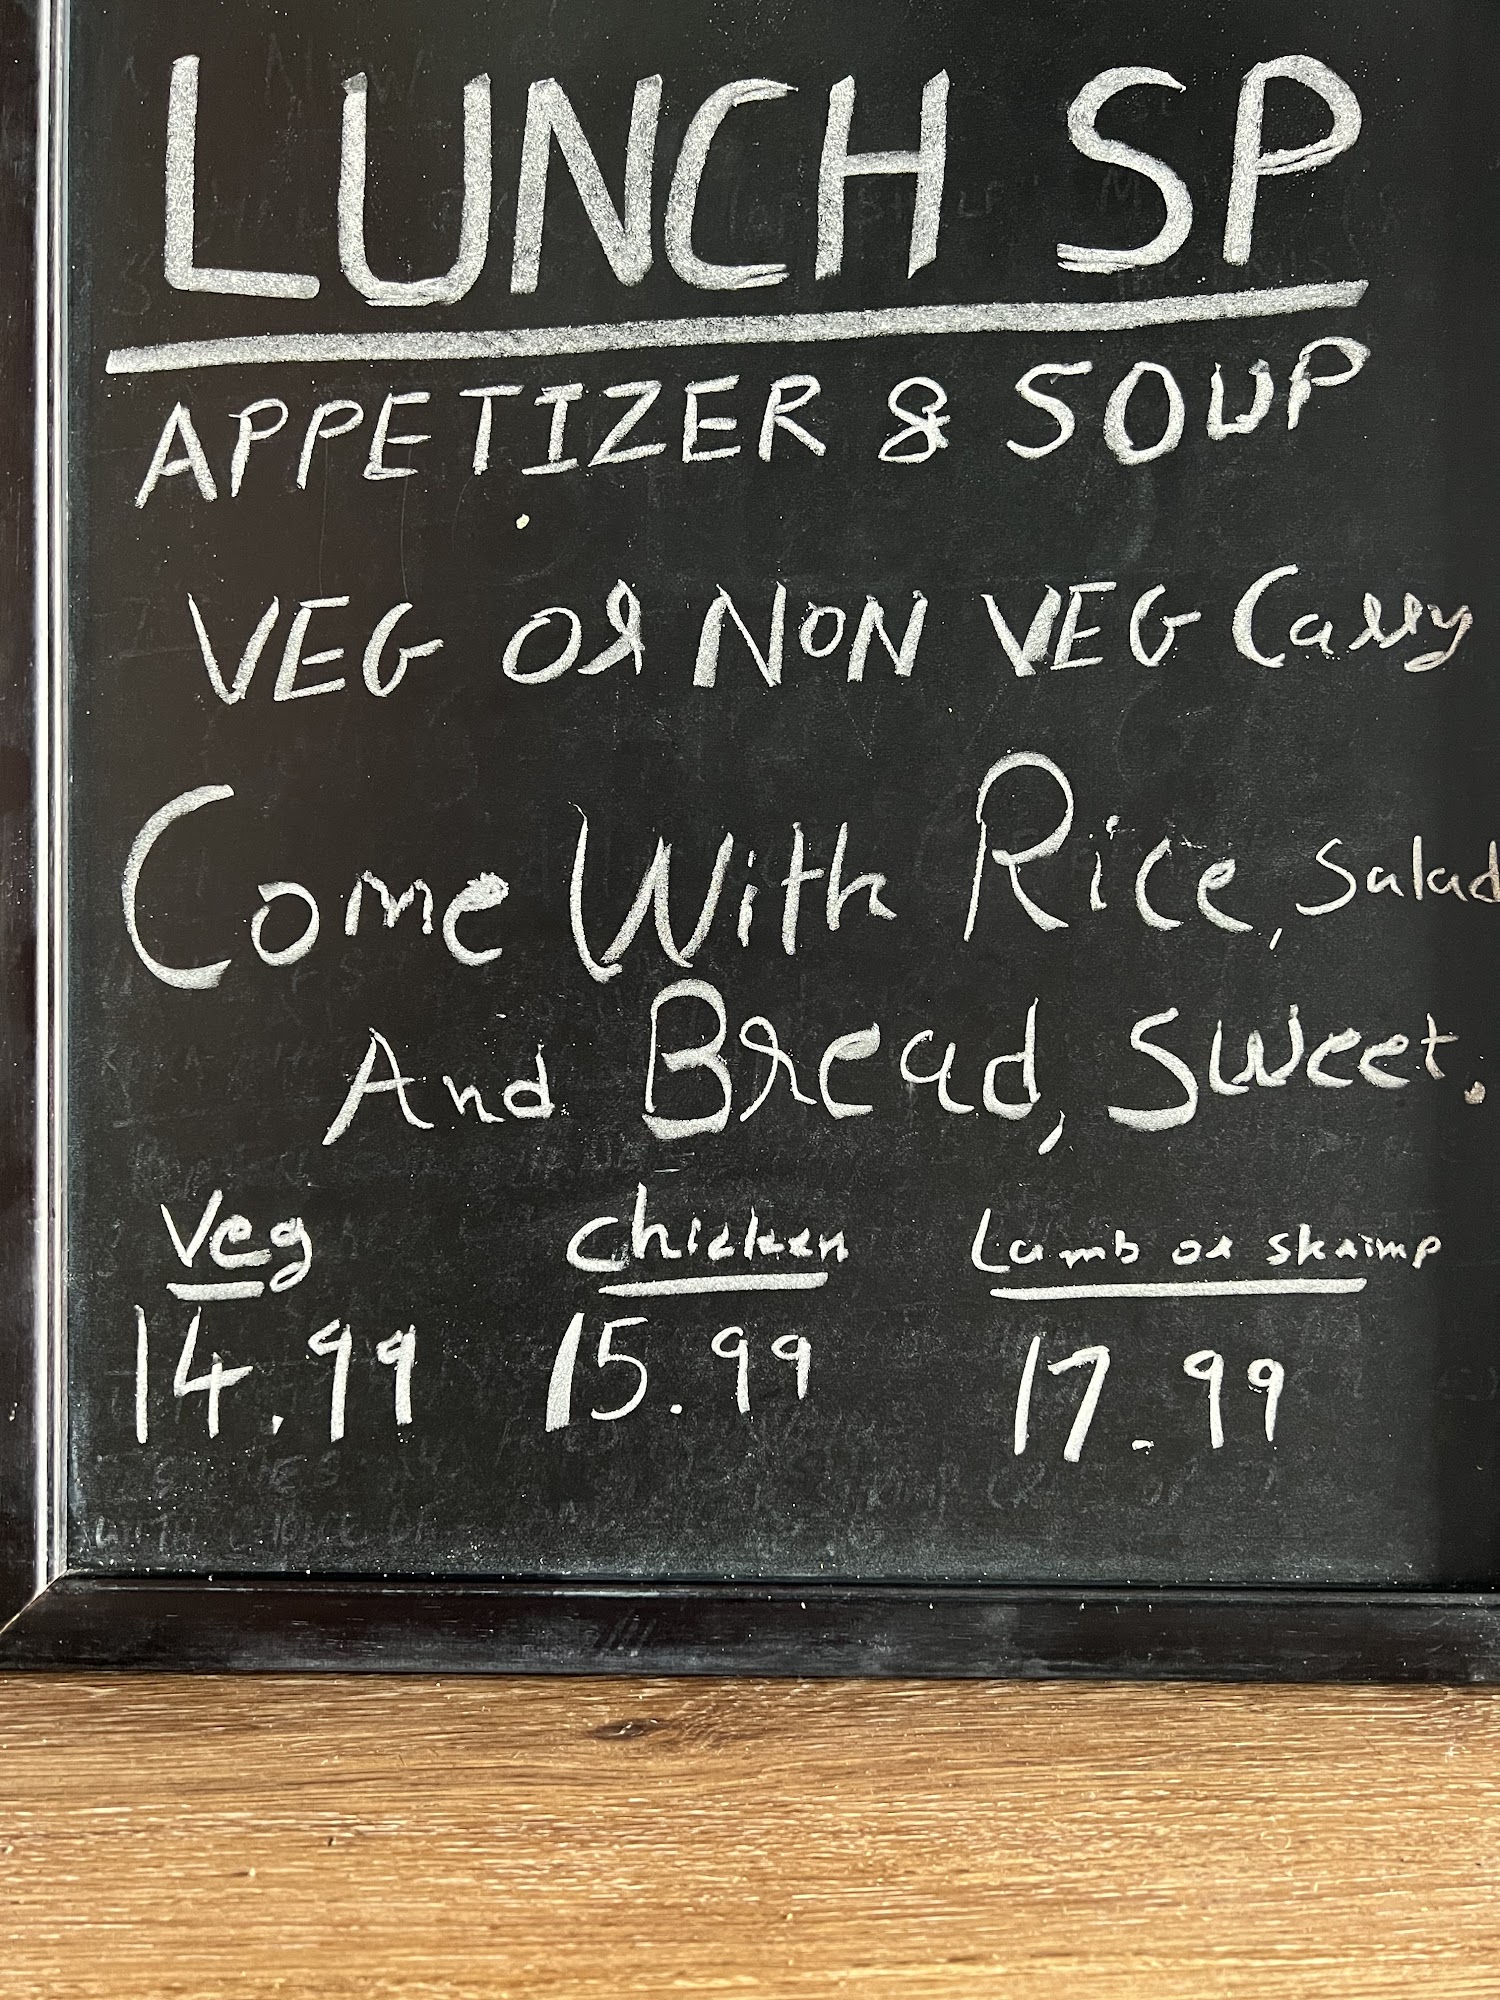 LUNCH SP
APPETIZER & SOUP
VEG or NON VEG Carry
Come With Rice, Salad
And Bread, Sweet.
Veg Chicken Lamb or Shrimp
14.99 15.99 17.99